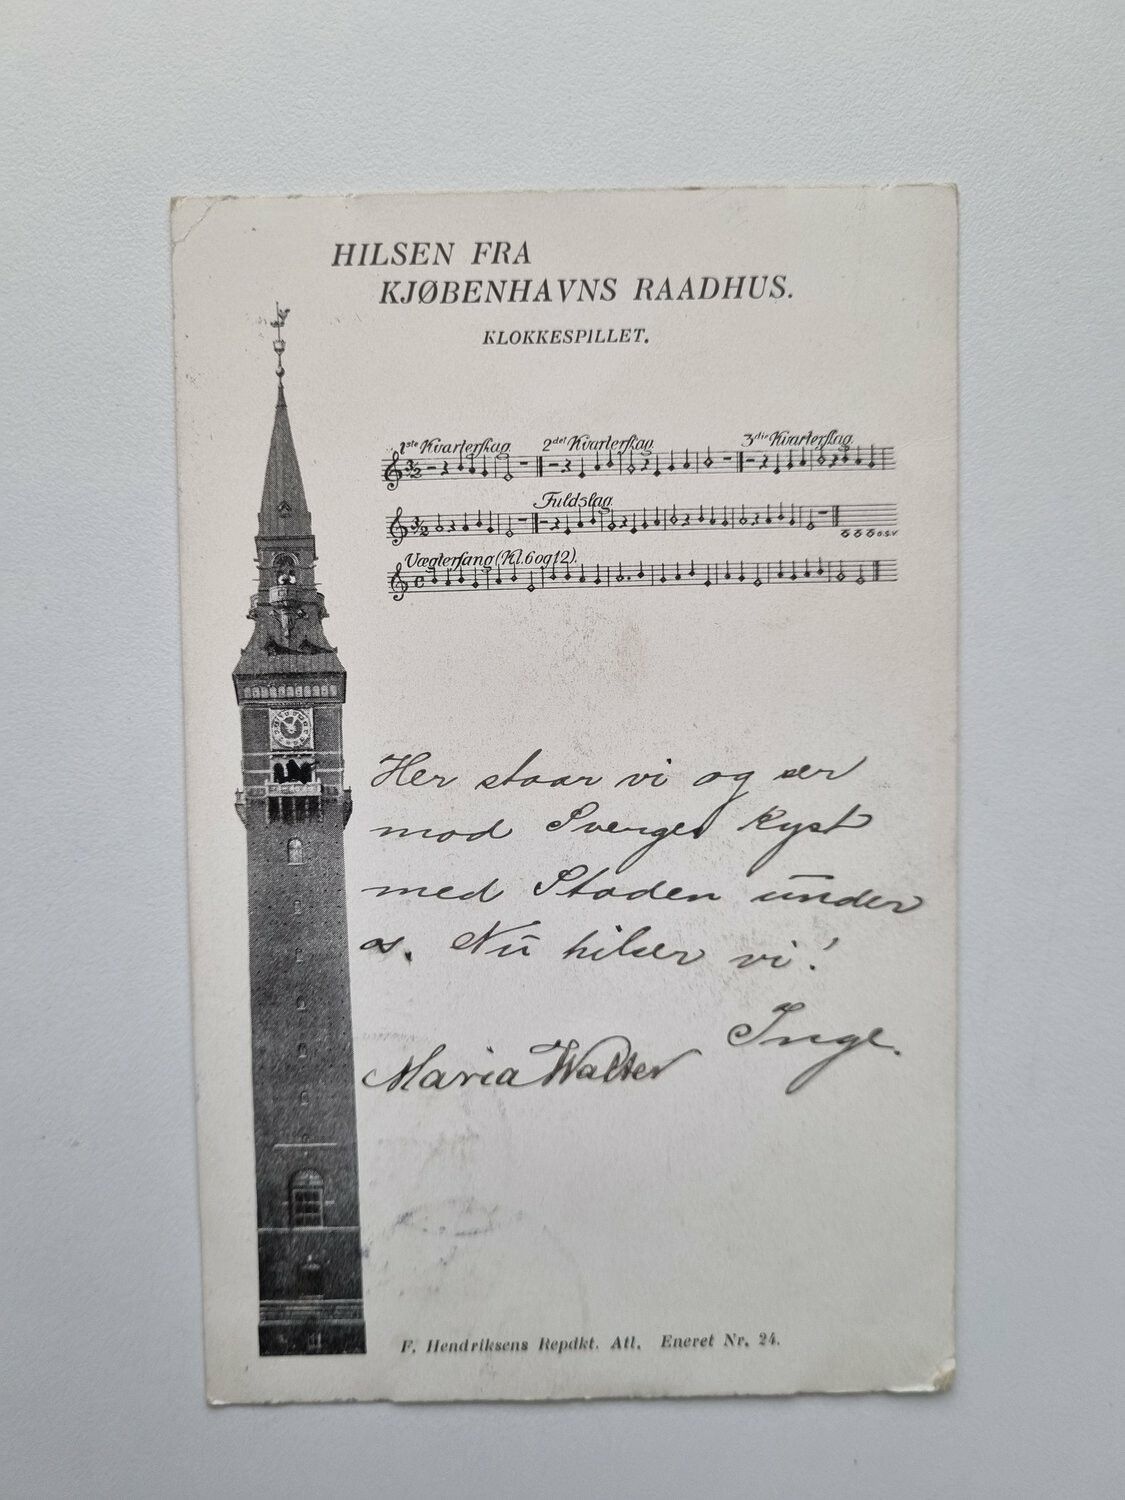 HILSEN FRA
KJØBENHAVNS RAADHUS.
KLOKKESPILLET.
1ste Kvarterslag. 2det Kvarterslag. 3die Kvarterslag.
Fuldslag.
o.s.v
Vægtersang (Kl. 6 og 12).
Her staar vi og ser
mod Sveriges Kyst
med Staden under
os. Nu hilser vi!
Inge.
Maria Walter
F. Hendriksens Repdkt. Atl. Eneret Nr. 24.